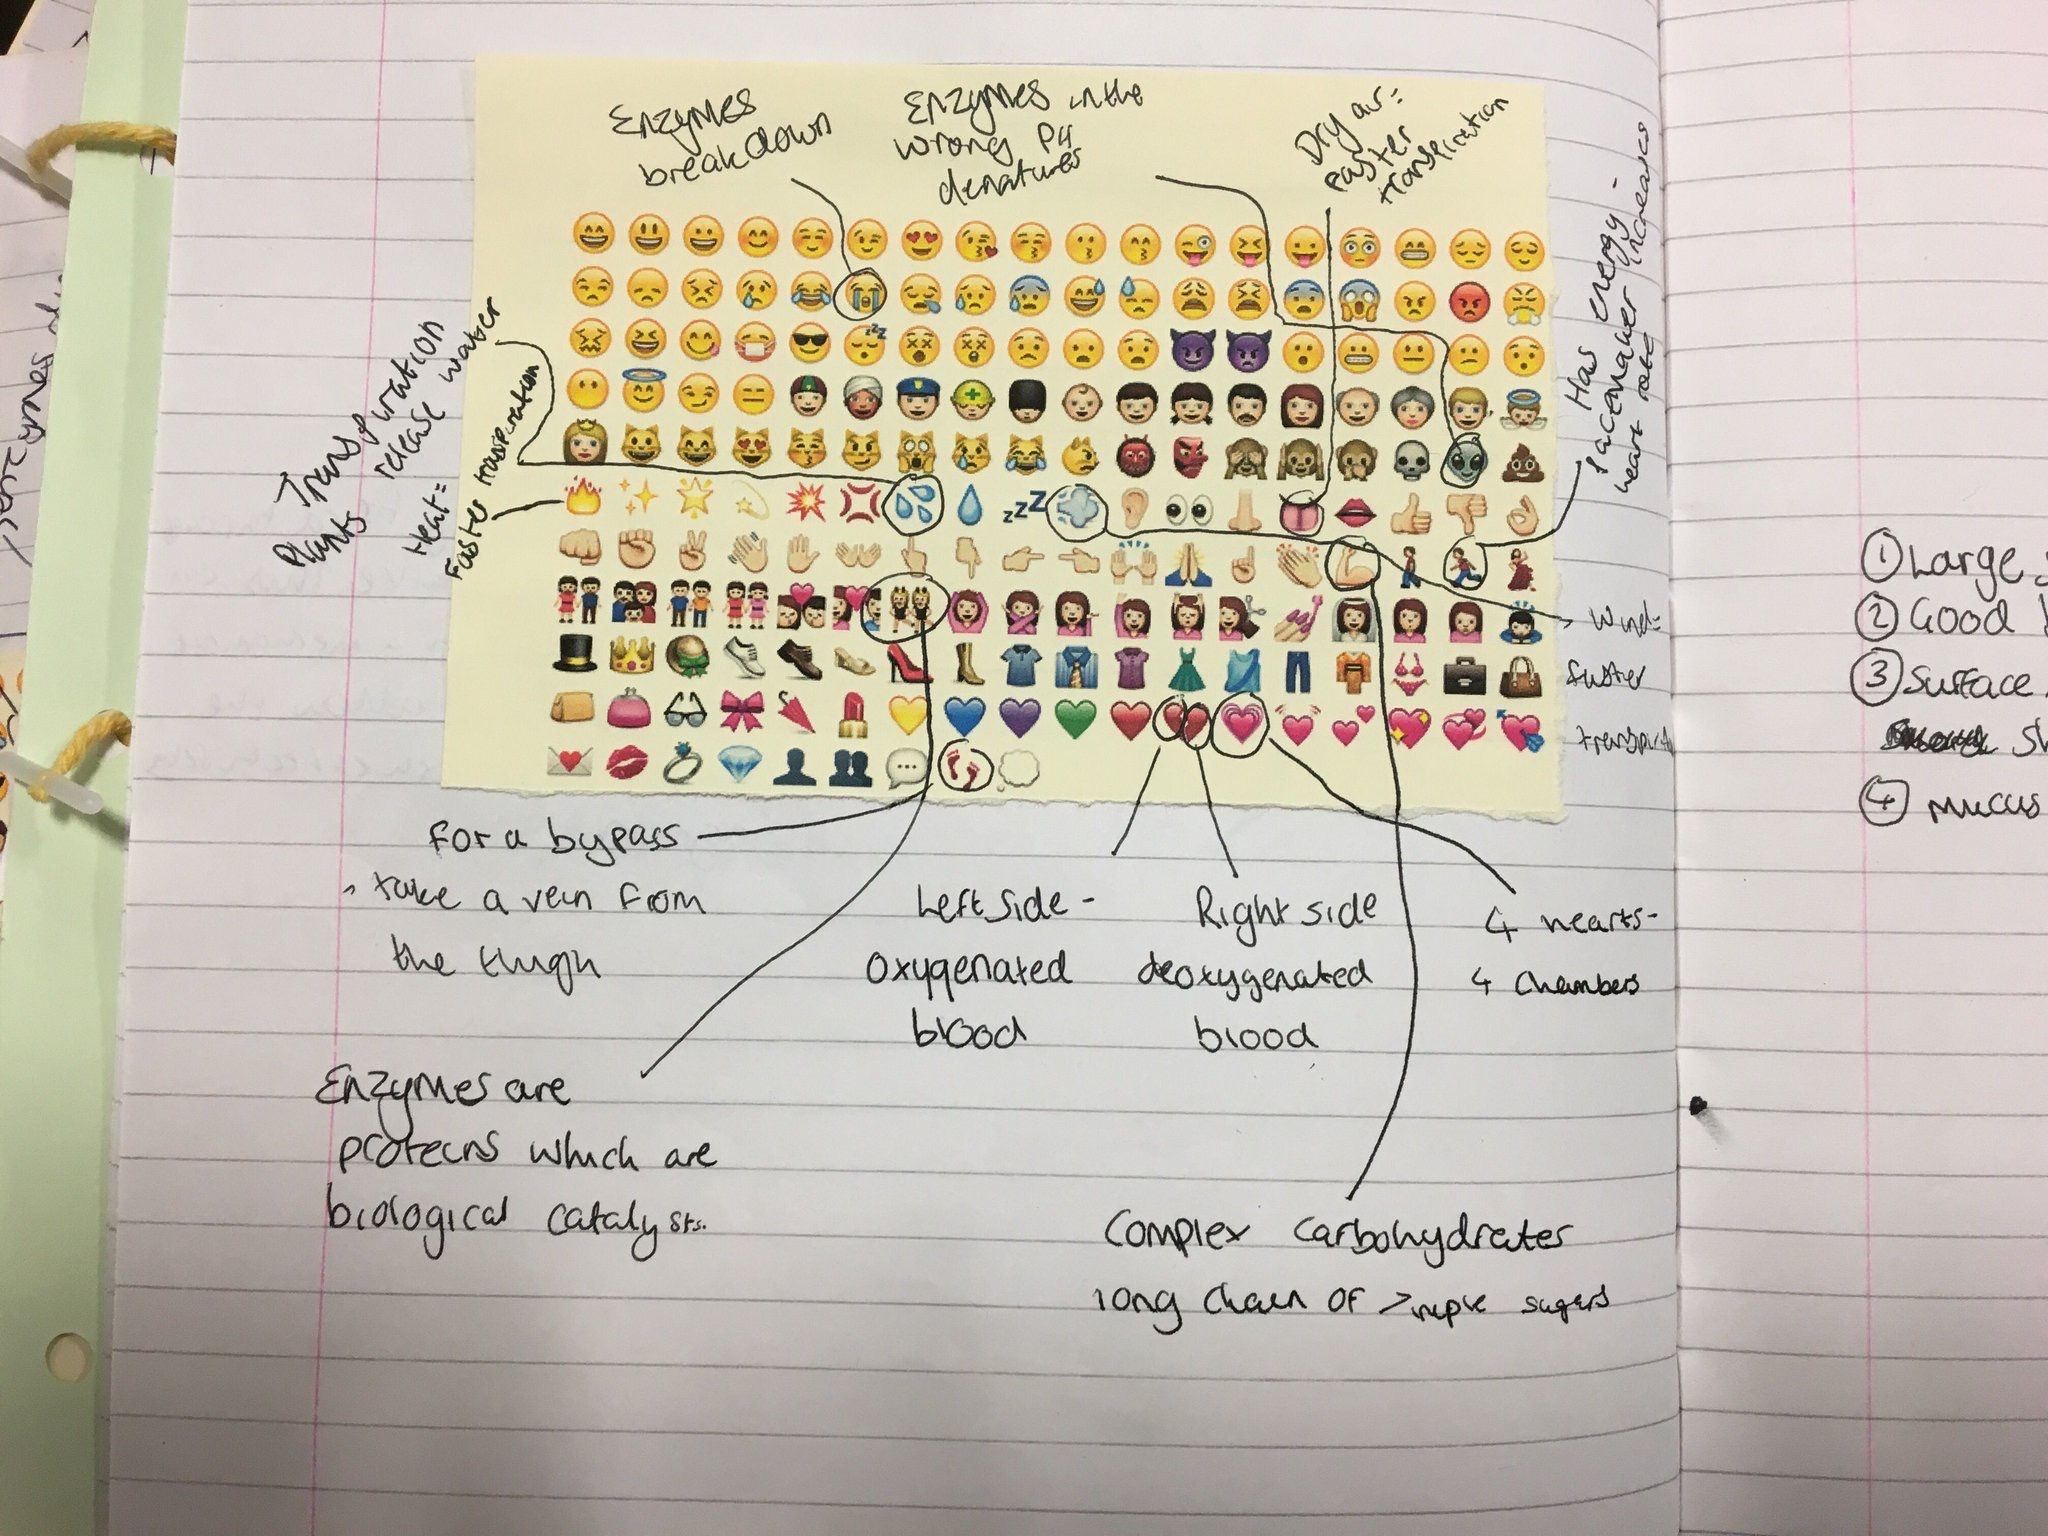 Enzymes
breakdown
Enzymes in the
wrong PH
denatures
Dry air =
faster
transpiration
Has energy -
pacemaker increases
heart rate
Transpiration
Plants release water
Heat =
Faster transpiration
Wind =
faster
For a bypass
- take a vein from
the thigh
Left side -
oxygenated
blood
Right side
deoxygenated
blood
4 hearts -
4 chambers
Enzymes are
proteins which are
biological catalysts.
Complex carbohydrates
long chain of simple sugars
zzZ
① Large
② Good
③ Surface
④ Mucus